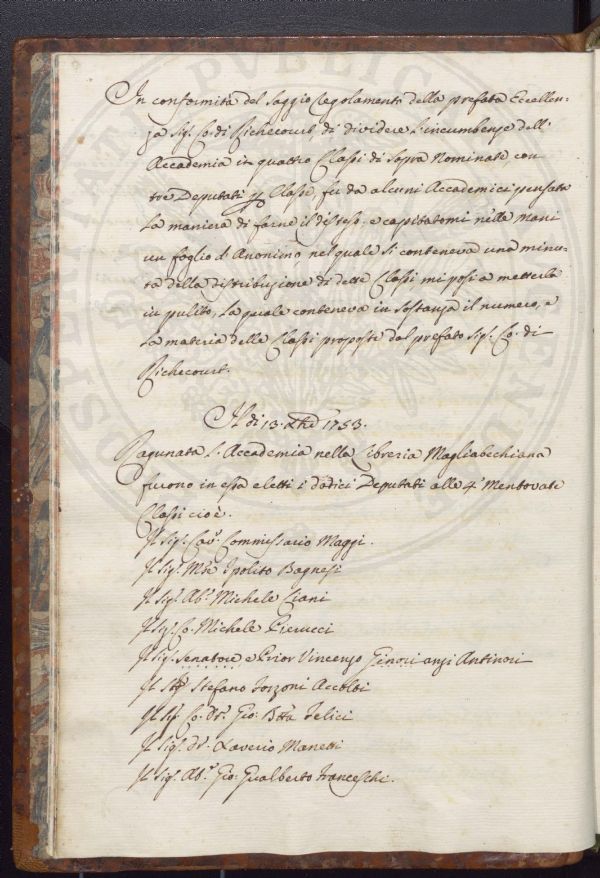 In conformità del saggio Regolamento della prefata Eccellen-
za Sig.r Co: di Richecourt, di dividere l'incumbenze dell'
Accademia in quattro Classi di sopra Nominate, con
tre Deputati p Classe, fu da alcuni Accademici pensata
la maniera di farne il disteso: e capitatomi nelle mani
un foglio d'Anonimo nel quale si conteneva una minu-
ta della distribuzione di dette Classi mi posi a metterlo
in pulito, la quale conteneva in sostanza il numero, e
la materia delle Classi proposte dal prefato Sig.r Co: di
Richecourt.
Il dì 13. Xbre 1753.
Ragunata l'Accademia nella Libreria Magliabechiana
furono in essa eletti i dodici Deputati alle 4 Mentovate
Classi cioè.
Il Sig.r Cav.r Commissario Maggi.
Il Sig.r M.se Ipolito Bagnesi
Il Sig.r Ab.e Michele Ciani
Il Sig.r Co: Michele Pierucci
Il Sig.r Senatore e Prior Vincenzo Ginori anzi Antinori
Il Sig.r Stefano Torzoni Accolti
Il Sig.r Co: D.r Gio: Bтta Felici
Il Sig.r D.r Saverio Manetti
Il Sig.r Ab.e Gio: Gualberto Franceschi.
PVBLICAE